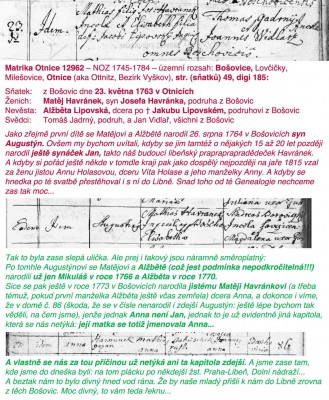 Matrika Otnice 12962 – NOZ 1745-1784 – územní rozsah: Bošovice, Lovčičky,
Milešovice, Otnice (aka Ottnitz, Bezirk Vyškov), str. (sňatků) 49, digi 185:
Sňatek: z Bošovic dne 23. května 1763 v Otnicích
Ženich: Matěj Havránek, syn Josefa Havránka, podruha z Bošovic
Nevěsta: Alžběta Lipovská, dcera po † Jakubu Lipovském, podruhovi z Bošovic
Svědci: Tomáš Jadrný, podruh, a Jan Vidlař, všichni z Bošovic
Jako zřejmě první dítě se Matějovi a Alžbětě narodil 26. srpna 1764 v Bošovicích syn
Augustýn. Ovšem my bychom uvítali, kdyby se jim tamtéž o nějakých 15 až 20 let později
narodil ještě synáček Jan, takto náš budoucí libeňský prapraprapradědeček Havránek.
A kdyby si pořád ještě někde v tomtéž kraji pak jako dospělý nejpozději na jaře 1815 vzal
za ženu jistou Annu Holasovou, dceru Víta Holase a jeho manželky Anny. A kdyby se
hnedka po té svatbě přestěhoval i s ní do Libně. Snad toho od té Genealogie nechceme
zas tak moc...
Tak to byla zase slepá ulička. Ale prej i takový jsou náramně směroplatný:
Po tomhle Augustýnovi se Matějovi a Alžbětě (což jest podmínka nepodkročitelná!!!)
narodili už jen Mikuláš v roce 1766 a Alžběta v roce 1770.
Sice se pak ještě v roce 1773 v Bošovicích narodila jistému Matěji Havránkovi (a třeba
témuž, pokud první manželka Alžběta ještě včas zemřela) dcera Anna, a dokonce i víme,
že v domě č. 86 (škoda, že se v čísle nenarodil i zdejší Augustýn: ještě lépe bychom tak
věděli, na čem jsme), jenže jednak Anna není Jan, jednak to je už evidentně jiná kapitola,
která se nás netýká: její matka se totiž jmenovala Anna...
A vlastně se nás za tou příčinou už netýká ani ta kapitola zdejší. A jsme zase tam,
kde jsme do dneška byli: na tom plácku po někdejší žst. Praha-Libeň, Dolní nádraží...
A beztak nám to bylo divný hned vod rána. Že by naše mladý přišli k nám do Libně zrovna
z těch Bošovic. Moc divný, to vám teda řeknu...